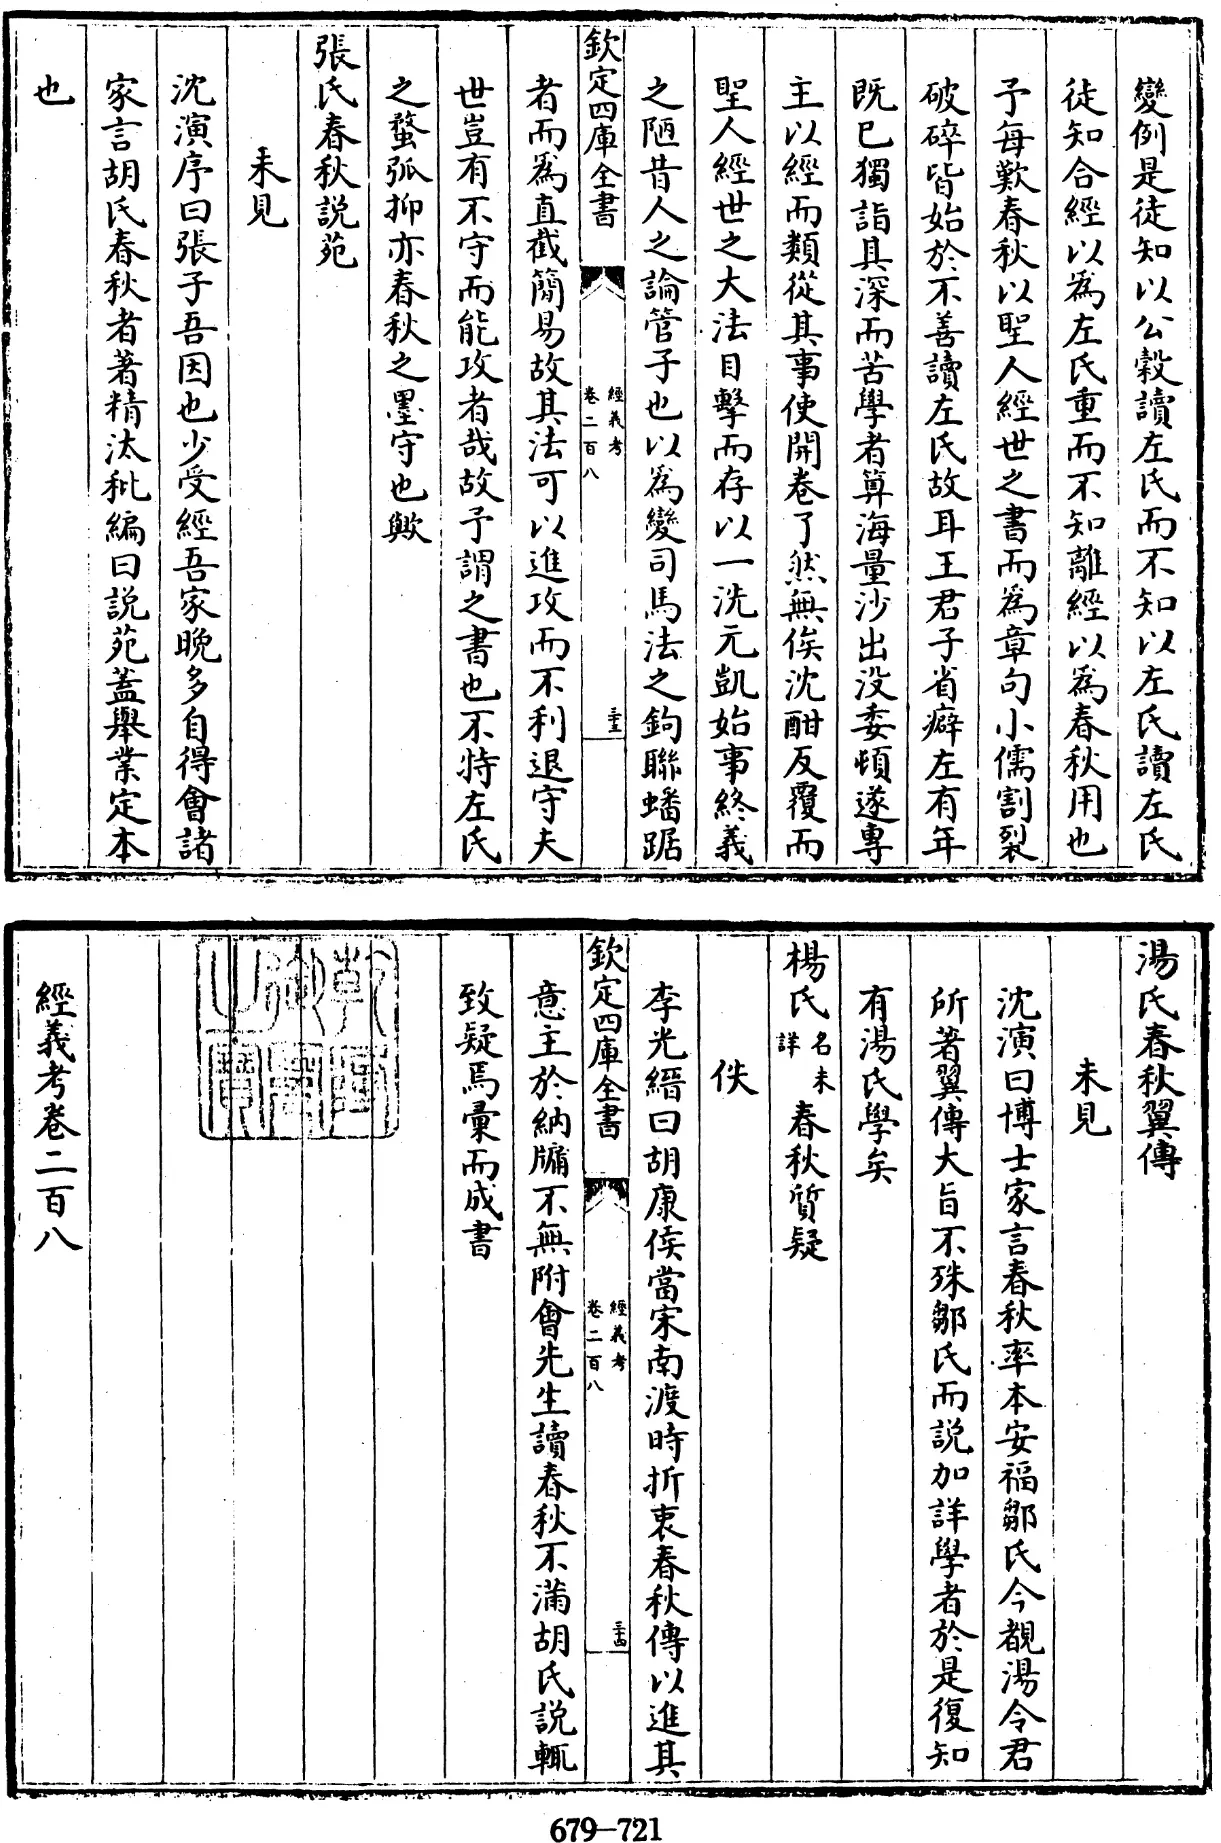 變例是徒知以公穀讀左氏而不知以左氏讀左氏
徒知合經以為左氏重而不知離經以為春秋用也
予每歎春秋以聖人經世之書而為章句小儒割裂
破碎皆始於不善讀左氏故耳王君子省癖左有年
既已獨詣其深而苦學者算海量沙出没委頓遂專
主以經而類從其事使開卷了然無俟沈酣反覆而
聖人經世之大法目擊而存以一洗元凱始事終義
之陋昔人之論管子也以為變司馬法之鉤聯蟠踞
欽定四庫全書
經義考
卷二百八
三十三
者而為直截簡易故其法可以進攻而不利退守夫
世豈有不守而能攻者哉故予謂之書也不特左氏
之蝥弧抑亦春秋之墨守也歟
張氏春秋説苑
未見
沈演序曰張子吾因也少受經吾家晚多自得會諸
家言胡氏春秋者著精汰秕編曰説苑蓋舉業定本
也
湯氏春秋翼傳
未見
沈演曰博士家言春秋率本安福鄒氏今覩湯令君
所著翼傳大旨不殊鄒氏而説加詳學者於是復知
有湯氏學矣
楊氏名未詳春秋質疑
佚
李光縉曰胡康侯當宋南渡時折衷春秋傳以進其
欽定四庫全書
經義考
卷二百八
三十四
意主於納牖不無附會先生讀春秋不滿胡氏説輒
致疑焉彚而成書
乾隆御覽之寶
經義考卷二百八
679-721